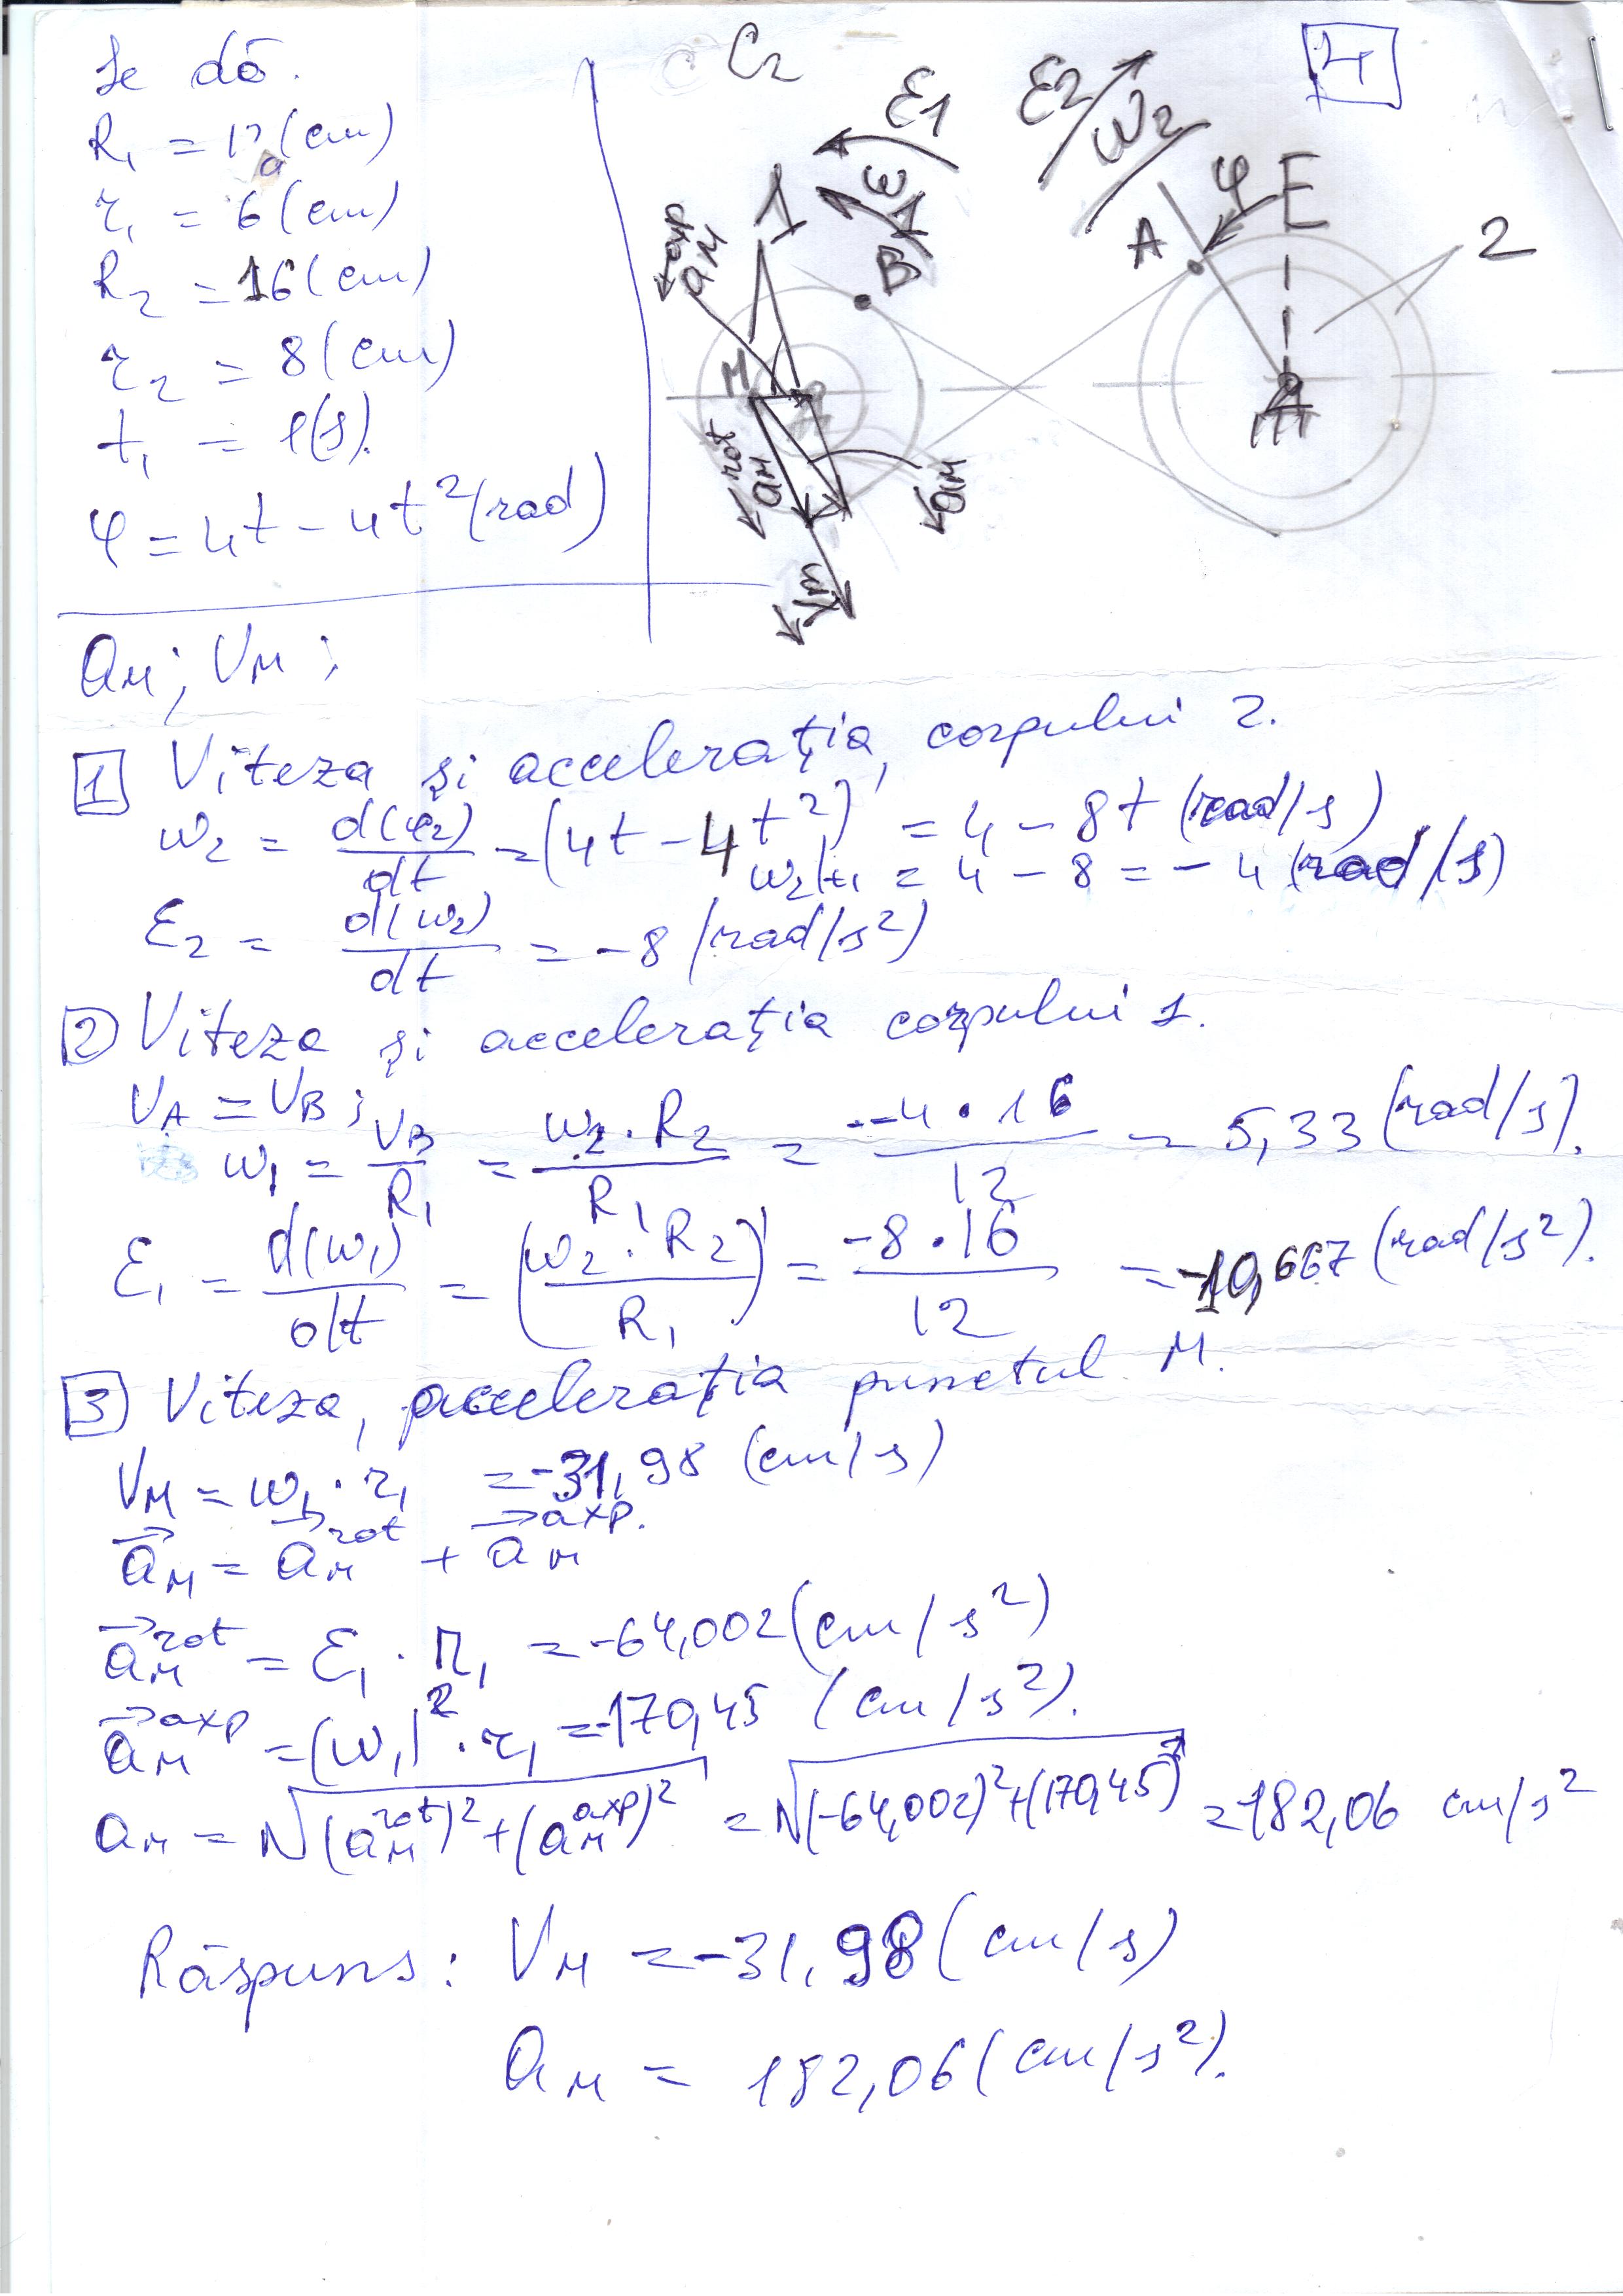 Se dă.
R₁ = 12 (cm)
r₁ = 6 (cm)
R₂ = 16 (cm)
r₂ = 8 (cm)
t₁ = 1(s).
φ = 4t - 4t² (rad)
aм; Vм;
C₂
4
ε1
ω1
ε2
ω2
1
B
A
φ
E
2
M
aм axp
aм rot
aм
Vm
1 Viteza și accelerația corpului 2.
ω₂ = d(φ₂)/dt = (4t - 4t²)' = 4 - 8t (rad/s)
ω₂|t₁ = 4 - 8 = - 4 (rad/s)
ε₂ = d(ω₂)/dt = -8 (rad/s²)
2 Viteza și accelerația corpului 1.
VA = VB;
ω₁ = VB/R₁ = ω₂·R₂/R₁ = --4·16/12 = 5,33 (rad/s).
ε₁ = d(ω₁)/dt = (ω₂·R₂/R₁)' = -8·16/12 = -10,667 (rad/s²).
3 Viteza, accelerația punctul M.
Vм = ω₁·r₁ = -31,98 (cm/s)
aм = aм rot + aм axp.
aм rot = ε₁·r₁ = -64,002 (cm/s²)
aм axp = (ω₁)²·r₁ = -170,45 (cm/s²).
aм = √(aм rot)²+(aм axp)² = √(-64,002)²+(170,45)² = 182,06 cm/s²
Răspuns: Vм = -31,98 (cm/s)
aм = 182,06 (cm/s²).